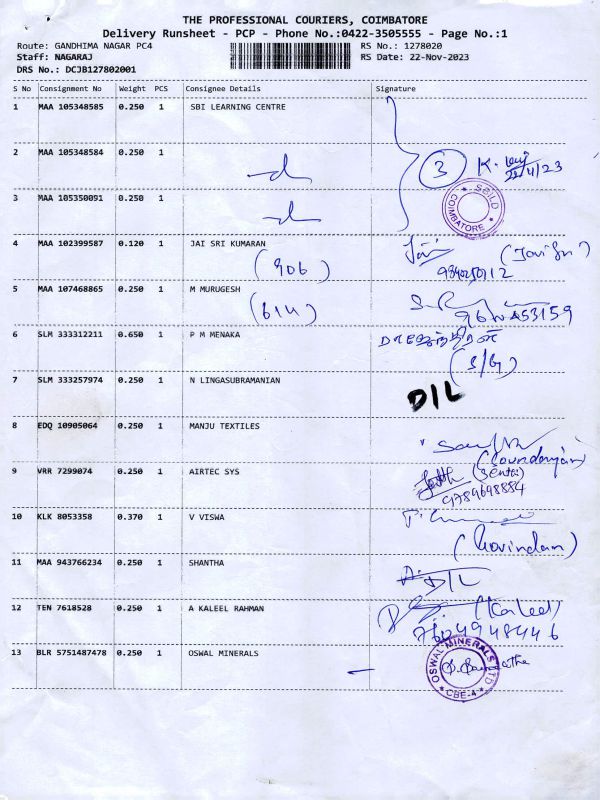 THE PROFESSIONAL COURIERS, COIMBATORE
Delivery Runsheet - PCP - Phone No.:0422-3505555 - Page No.:1
Route: GANDHIMA NAGAR PC4 RS No.: 1278020
Staff: NAGARAJ RS Date: 22-Nov-2023
DRS No.: DCJB127802001
S No Consignment No Weight PCS Consignee Details Signature
1 MAA 105348585 0.250 1 SBI LEARNING CENTRE
2 MAA 105348584 0.250 1
3 K.
3 MAA 105350091 0.250 1
SBILD COIMBATORE
4 MAA 102399587 0.120 1 JAI SRI KUMARAN
(906)
5 MAA 107468865 0.250 1 M MURUGESH
(614)
6 SLM 333312211 0.650 1 P M MENAKA
(S/G)
7 SLM 333257974 0.250 1 N LINGASUBRAMANIAN
D/L
8 EDQ 10905064 0.250 1 MANJU TEXTILES
9 VRR 7299074 0.250 1 AIRTEC SYS
9789698884
10 KLK 8053358 0.370 1 V VISWA
(Govindan)
11 MAA 943766234 0.250 1 SHANTHA
D/L
12 TEN 7618528 0.250 1 A KALEEL RAHMAN (Kaleel)
7604948446
13 BLR 5751487478 0.250 1 OSWAL MINERALS
OSWAL MINERALS LTD CBE-4